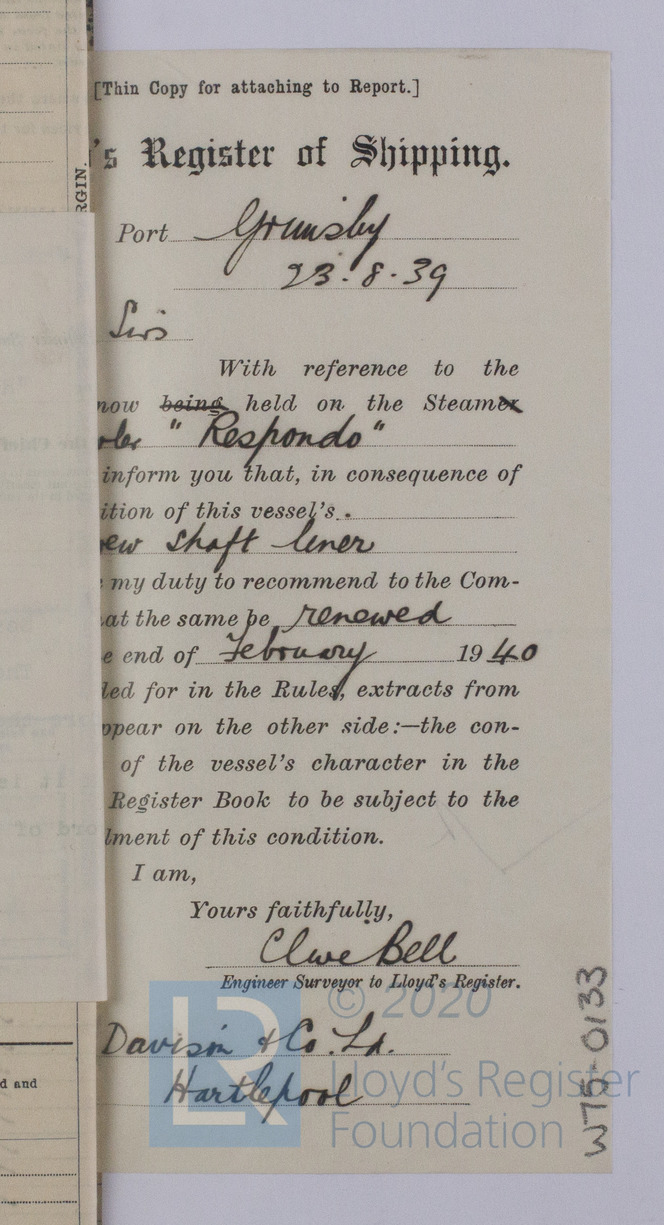 [Thin Copy for attaching to Report.]
's Register of Shipping.
RGIN.
Port Grimsby
23.8.39
Sirs
With reference to the
now being held on the Steamer
"Respondo"
inform you that, in consequence of
ition of this vessel's
ew shaft liner
my duty to recommend to the Com-
at the same be renewed
e end of February 1940
led for in the Rules, extracts from
ppear on the other side:—the con-
of the vessel's character in the
Register Book to be subject to the
lment of this condition.
I am,
Yours faithfully,
Clive Bell
Engineer Surveyor to Lloyd's Register.
© 2020
Davison & Co. Ld.
Hartlepool
d and
LR
Lloyd's Register
Foundation
W75-0133